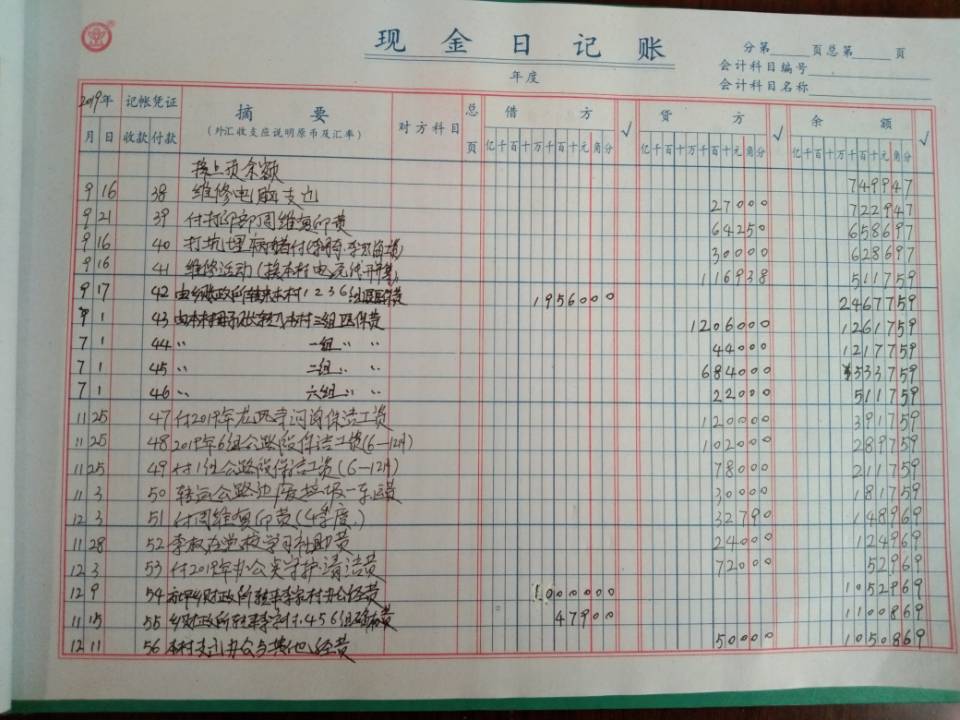 现金日记账
分第 页总第 页
会计科目编号
会计科目名称
年度
2019年 记帐凭证 摘要 对方科目 总页 借方 √ 贷方 √ 余额 √
月 日 收款 付款 (外汇收支应说明原币及汇率) 亿千百十万千百十元角分 亿千百十万千百十元角分 亿千百十万千百十元角分
接上页余额 749947
9 16 38 维修电脑支出 27000 722947
9 21 39 付打印部周维 印费 64250 658697
9 16 40 打坑埋病猪付 30000 628697
9 16 41 维修活动 116938 511759
9 17 42 由乡财政所转来本村1236组医保费 1956000 2467759
9 1 43 本村三组医保费 1206000 1261759
7 1 44 〃 一组〃 〃 44000 1217759
7 1 45 〃 二组〃 〃 684000 533759
7 1 46 〃 六组〃 〃 22000 511759
11 25 47 付2019年 河沟保洁工资 120000 391759
11 25 48 2019年6组公路段保洁工资(6-12月) 102000 289759
11 25 49 付1组公路段保洁工资(6-12月) 78000 211759
11 3 50 转运公路边废垃圾一车运费 30000 181759
12 3 51 付周维 印费(4季度.) 32790 148969
11 28 52 李 党校学习补助费 24000 124969
12 3 53 付2019年办公室守护清洁费 72000 52969
12 9 54 乡财政所转来李家村办公经费 1000000 1052969
11 15 55 乡财政所转来李家村.456组 费 47900 1100869
12 11 56 本村支 办公与其他经费 50000 1050869